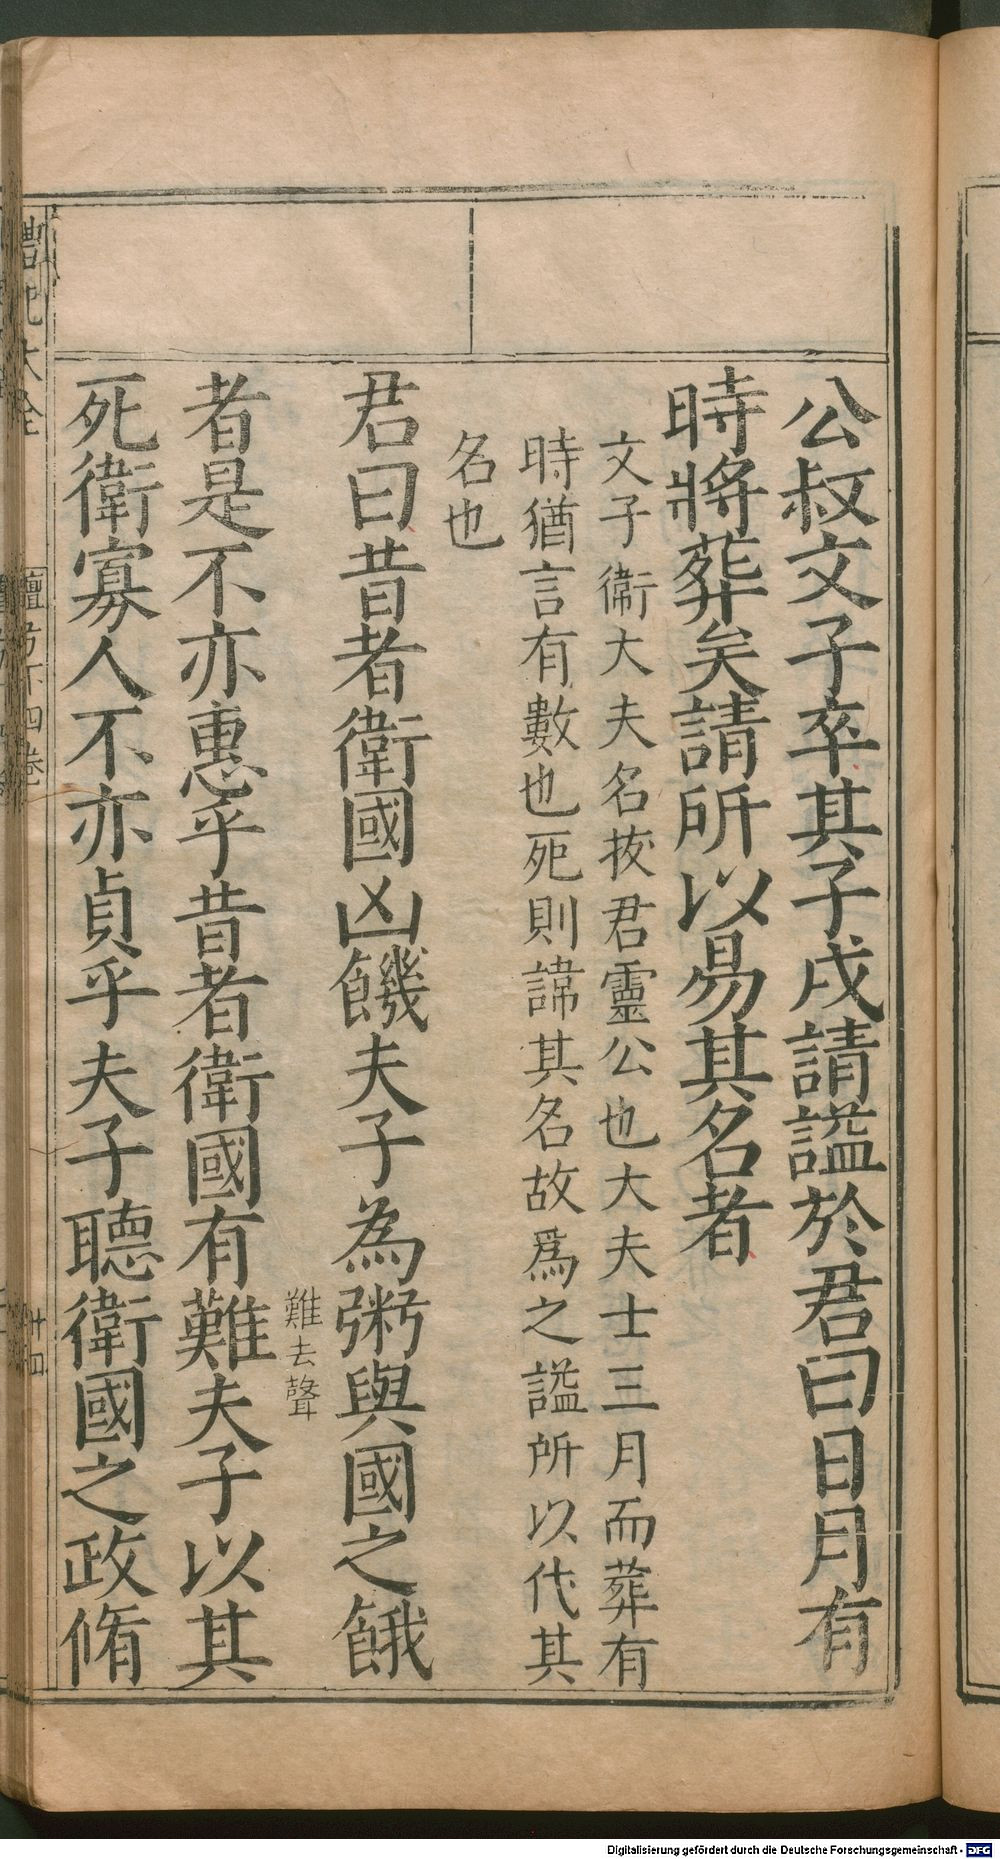 公叔文子卒其子戍請謚於君曰日月有
時將葬矣請所以易其名者
文子衛大夫名拔君靈公也大夫士三月而葬有
時猶言有數也死則諱其名故爲之謚所以代其
名也
君曰昔者衛國凶饑夫子為粥與國之餓
難去聲
者是不亦惠乎昔者衛國有難夫子以其
死衛寡人不亦貞乎夫子聽衛國之政脩
檀弓下四卷
廿四
Digitalisierung gefördert durch die Deutsche Forschungsgemeinschaft - DFG